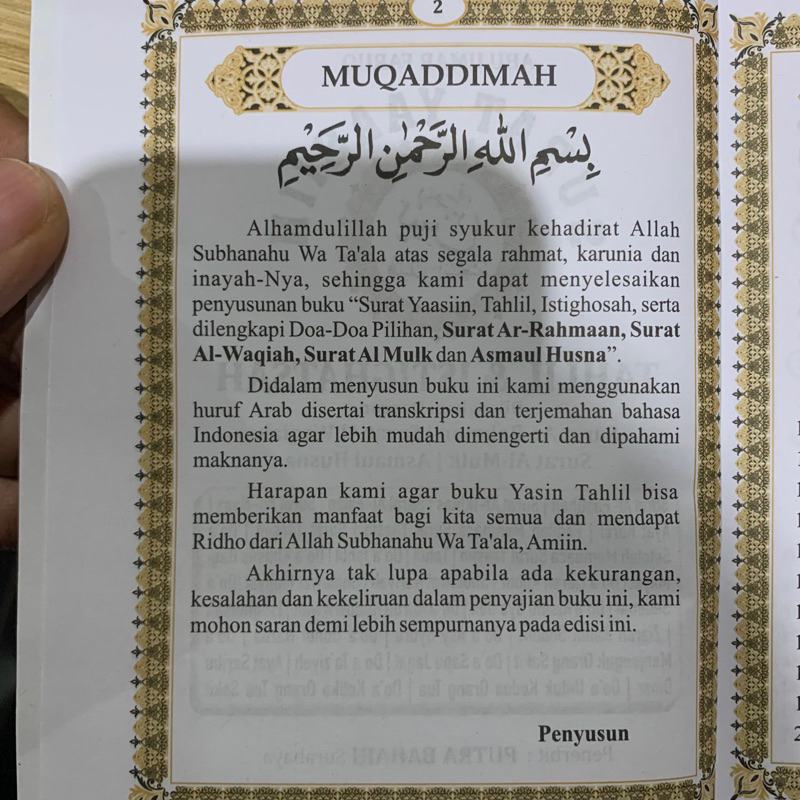 2
MUQADDIMAH
بِسْمِ اللهِ الرَّحْمٰنِ الرَّحِيْمِ
Alhamdulillah puji syukur kehadirat Allah
Subhanahu Wa Ta'ala atas segala rahmat, karunia dan
inayah-Nya, sehingga kami dapat menyelesaikan
penyusunan buku “Surat Yaasiin, Tahlil, Istighosah, serta
dilengkapi Doa-Doa Pilihan, Surat Ar-Rahmaan, Surat
Al-Waqiah, Surat Al Mulk dan Asmaul Husna”.
Didalam menyusun buku ini kami menggunakan
huruf Arab disertai transkripsi dan terjemahan bahasa
Indonesia agar lebih mudah dimengerti dan dipahami
maknanya.
Harapan kami agar buku Yasin Tahlil bisa
memberikan manfaat bagi kita semua dan mendapat
Ridho dari Allah Subhanahu Wa Ta'ala, Amiin.
Akhirnya tak lupa apabila ada kekurangan,
kesalahan dan kekeliruan dalam penyajian buku ini, kami
mohon saran demi lebih sempurnanya pada edisi ini.
Penyusun